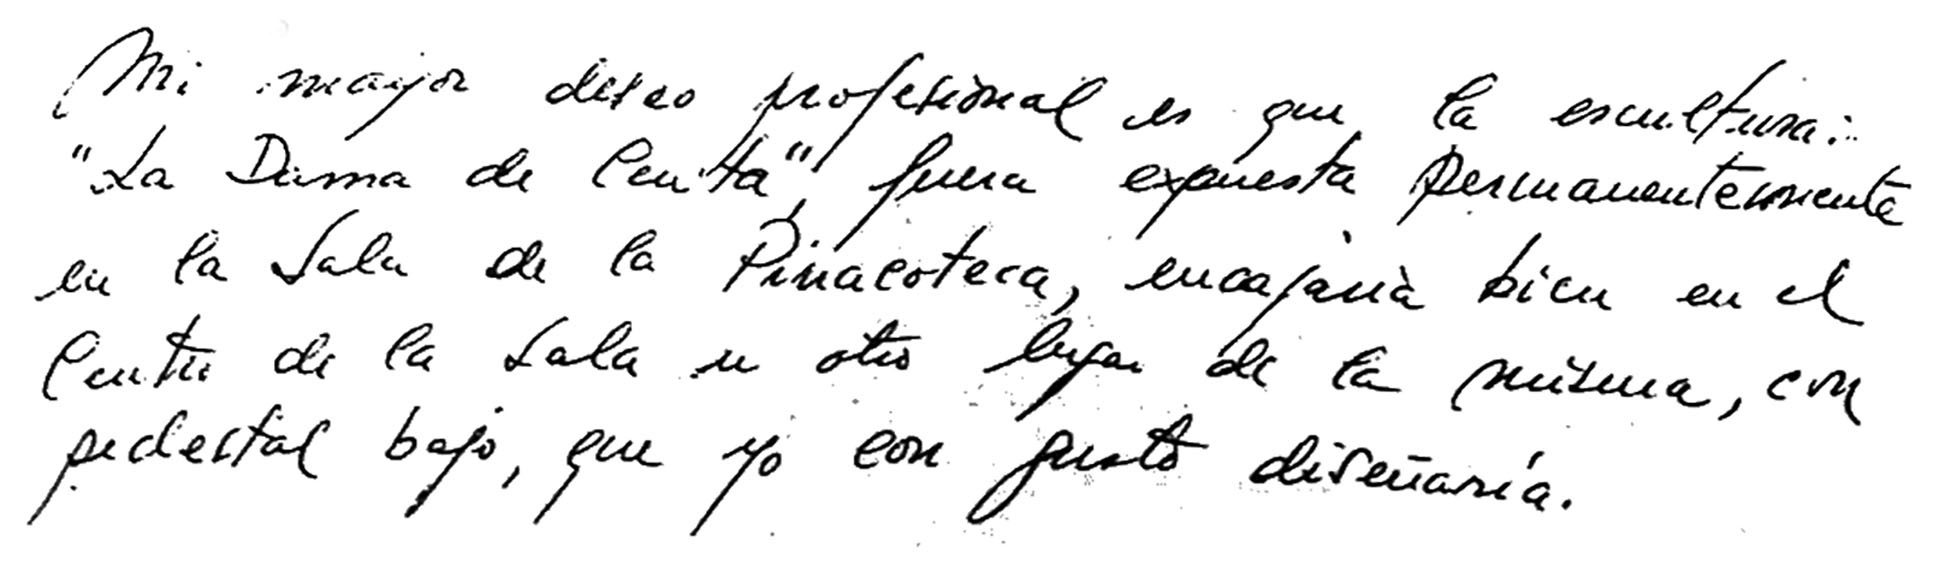 Mi mayor deseo profesional es que la escultura:
"La Dama de Ceuta", fuera expuesta permanentemente
en la Sala de la Pinacoteca, encajaría bien en el
Centro de la Sala u otro lugar de la misma, con
pedestal bajo, que yo con gusto diseñaría.